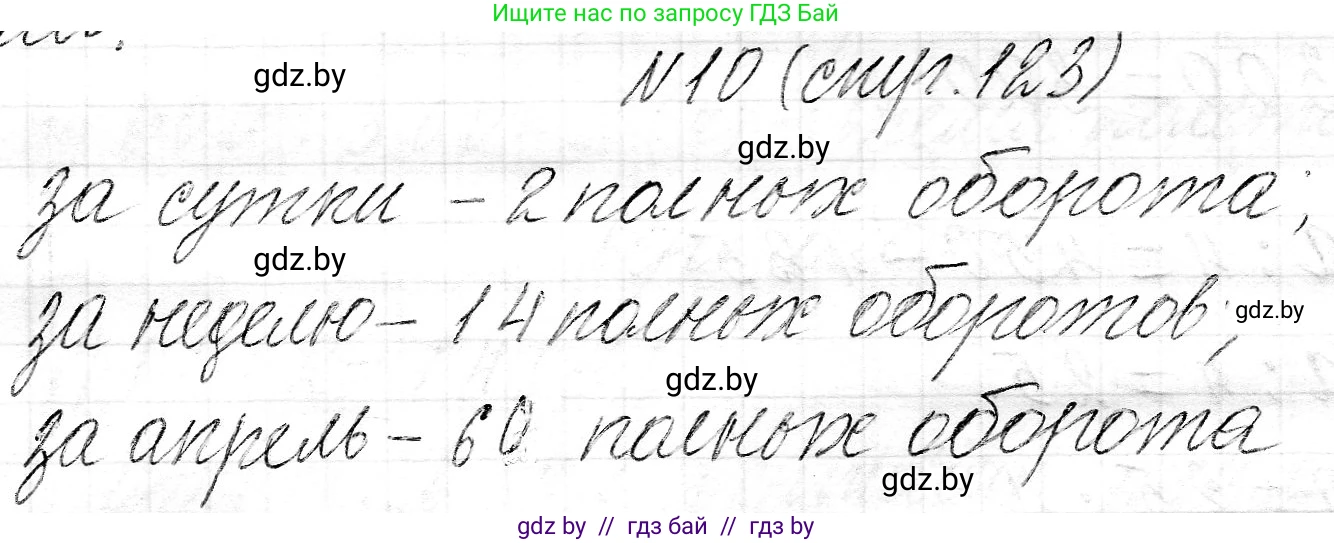 Ищите нас по запросу ГДЗ Бай
gdz.by
№10 (стр. 123)
gdz.by
за сутки – 2 полных оборота;
gdz.by
за неделю – 14 полных оборотов;
gdz.by
gdz.by
за апрель – 60 полных оборота
gdz.by
gdz by // гдз бай // гдз by